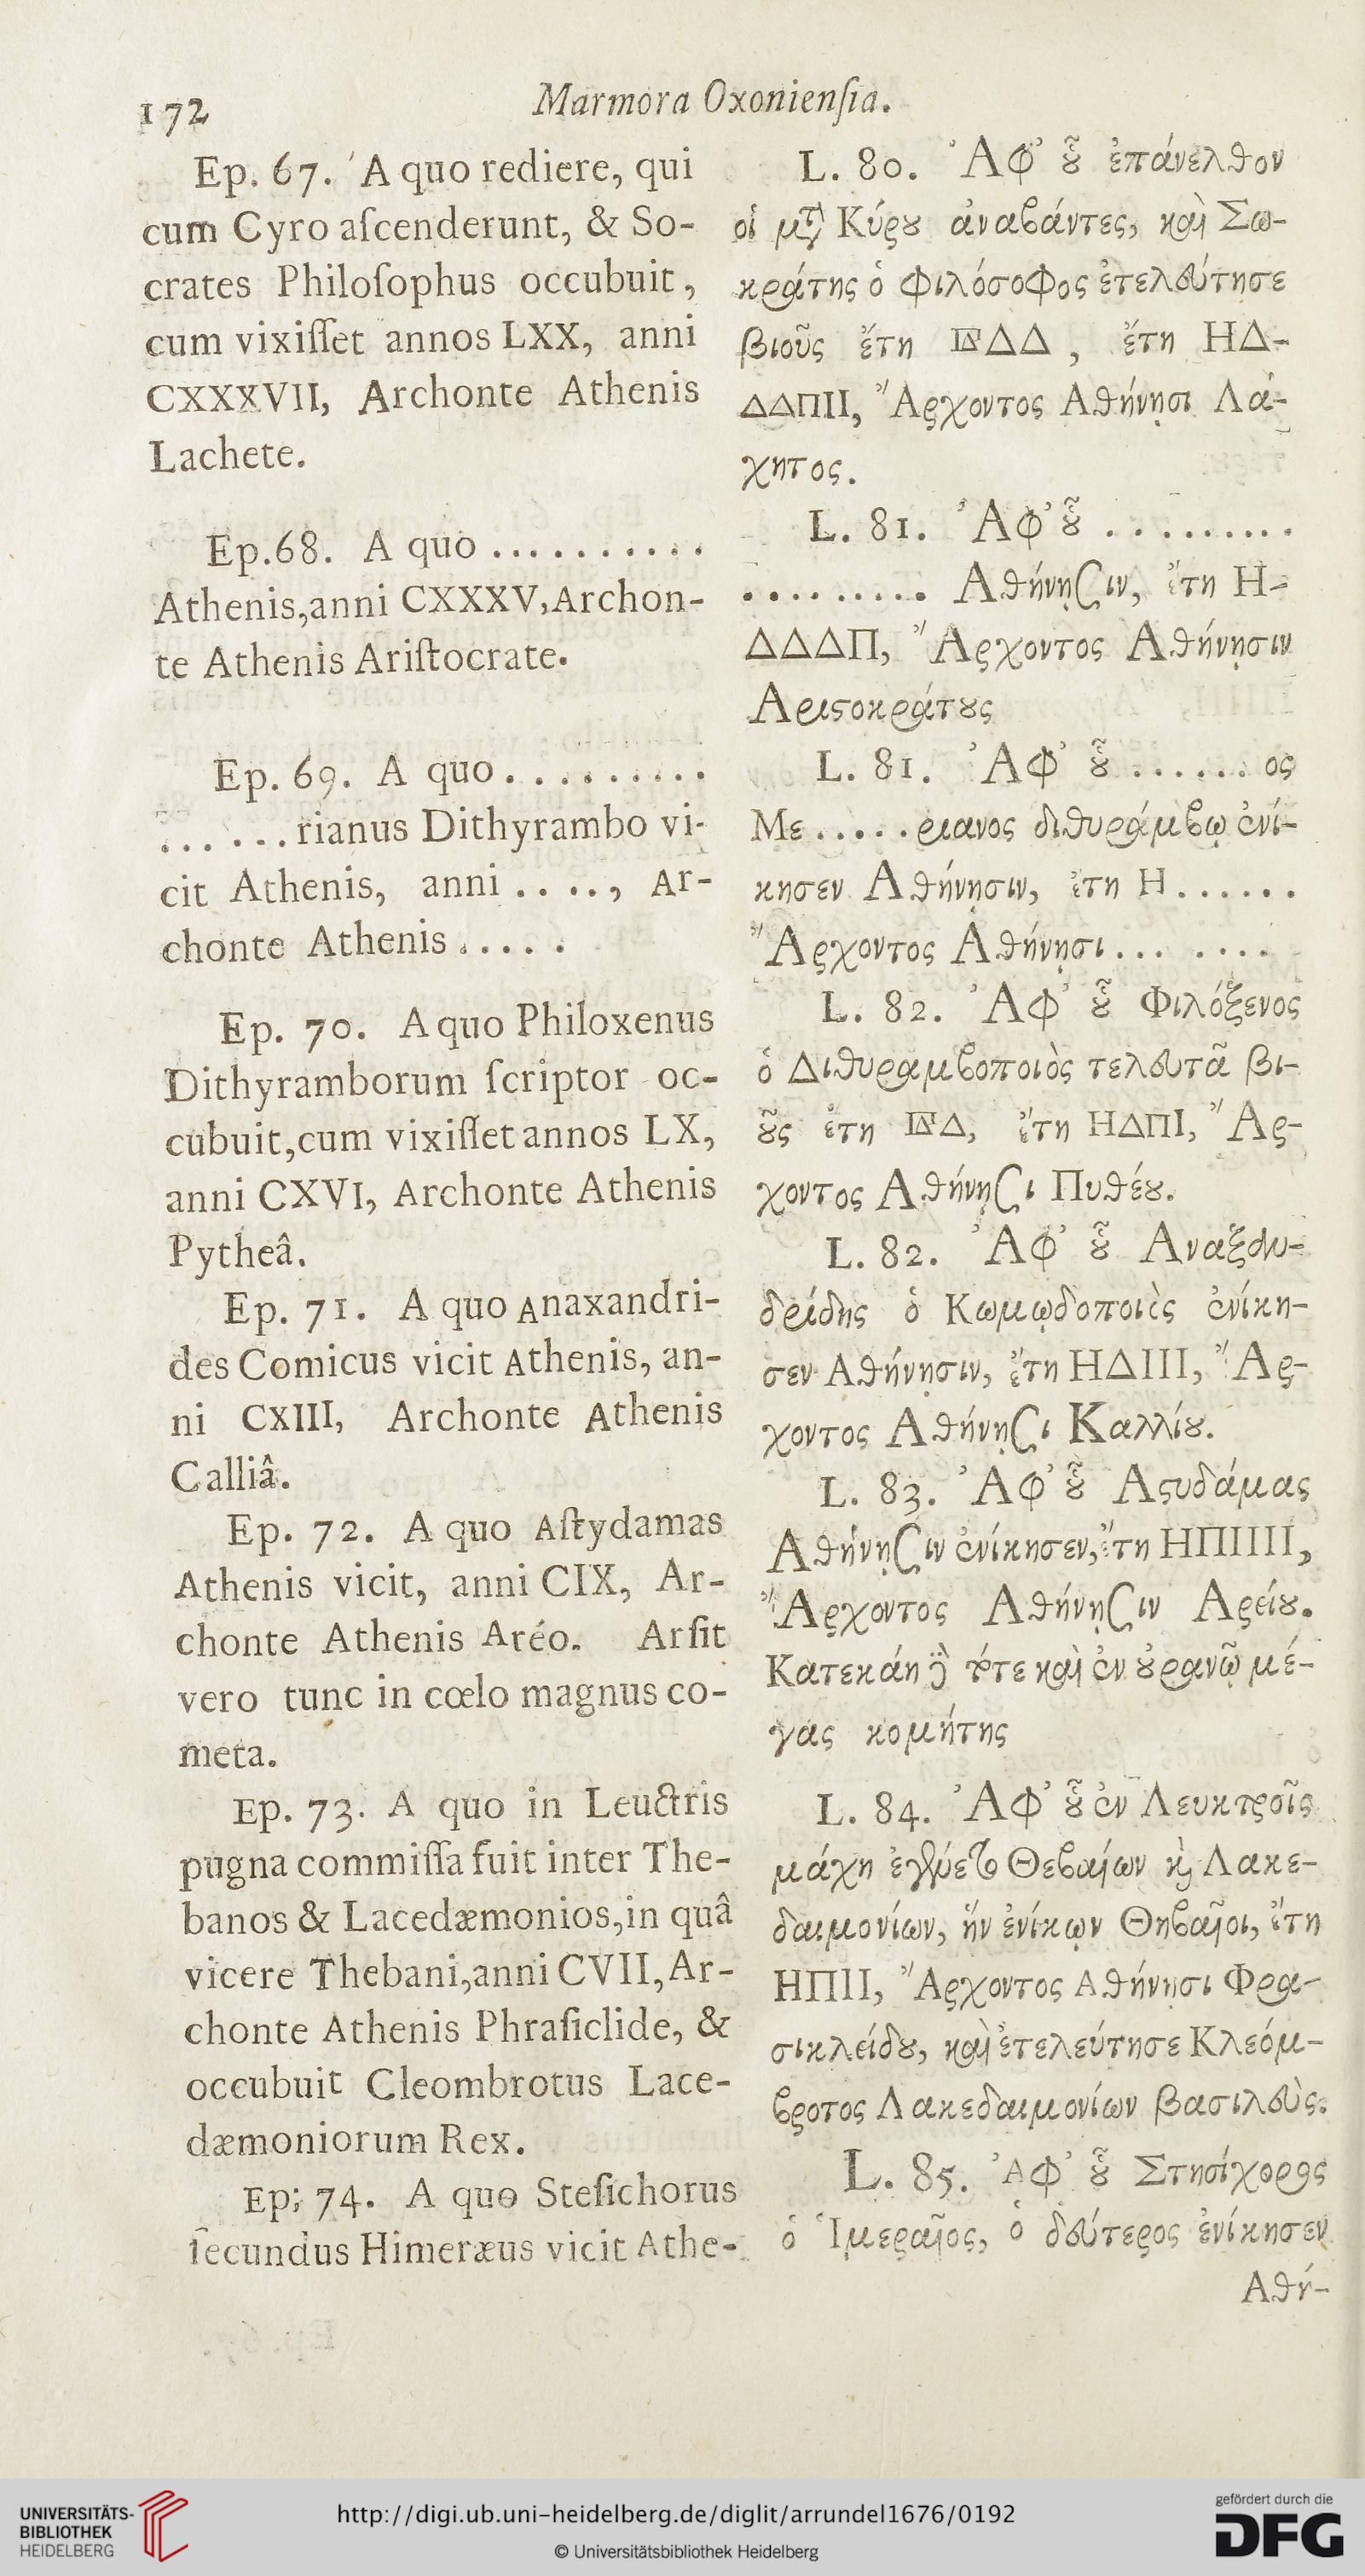 172
Marmora Oxonienſia.
Ep. 67. A quo rediere, qui
cum Cyro aſcenderunt, & So-
crates Philoſophus occubuit,
cum vixiſſet annos LXX, anni
CXXXVII, Archonte Athenis
Lachete.
Ep.68. A quo ..........
Athenis,anni CXXXV,Archon-
te Athenis Ariſtocrate.
Ep. 69. A quo.........
.......rianus Dithyrambo vi-
cit Athenis, anni ...., Ar-
chonte Athenis.....
Ep. 70. A quo Philoxenus
Dithyramborum ſcriptor oc-
cubuit,cum vixiſſet annos LX,
anni CXVI, Archonte Athenis
Pytheâ.
Ep. 71. A quo Anaxandri-
des Comicus vicit Athenis, an-
ni CXIII, Archonte Athenis
Calliâ.
Ep. 72. A quo Aſtydamas
Athenis vicit, anni CIX, Ar-
chonte Athenis Aréo. Arſit
vero tunc in cœlo magnus co-
meta.
Ep. 73. A quo in Leuctris
pugna commiſſa fuit inter The-
banos & Lacedæmonios,in quâ
vicere Thebani,anni CVII,Ar-
chonte Athenis Phraſiclide, &
occubuit Cleombrotus Lace-
dæmoniorum Rex.
Ep; 74. A quo Steſichorus
ſecundus Himeræus vicit Athe-
L. 80. ᾿Αφ᾿ ȣ͂ ἐπάνελθον
οἱ μτ͂ Κύρȣ ἀναβάντες, καὶ Σω-
κράτης ὁ φιλόσοφος ἐτελεύτησε
βιοῦς ἔτη 𐅄ΔΔ, ἔτη ΗΔ-
ΔΔΠΙΙ, ῎Αρχοντος Αθήνησι Λά-
χητος.
L. 81. ᾿Αφ᾿ ȣ͂ ..........
......... Αθήνησιν, ἔτη Η-
ΔΔΔΠ, ῎Αρχοντος Αθήνησιν
Αριϛοκράτȣς
L. 81. ᾿Αφ᾿ ȣ͂ ...... ος
Με.....ριανος διθυράμβῳ ἐνί-
κησεν Αθήνησιν, ἔτη Η......
῎Αρχοντος Αθήνησι... ....
L. 82. ᾿Αφ᾿ ȣ͂ Φιλόξενος
ὁ Διθυραμβοποιὸς τελευτᾶ βι-
ȣ͂ς ἔτη 𐅄Δ, ἔτη ΗΔΠΙ, ῎Αρ-
χοντος Αθήνησι Πυθέȣ.
L. 82. ᾿Αφ᾿ ȣ͂ Αναξαν-
δρίδης ὁ Κωμῳδοποιὸς ἐνίκη-
σεν Αθήνησιν, ἔτη ΗΔΙΙΙ, ῎Αρ-
χοντος Αθήνησι Καλλίȣ.
L. 83. ᾿Αφ᾿ ȣ͂ Αϛυδάμας
Αθήνησιν ἐνίκησεν, ἔτη ΗΠΙΙΙΙ,
῎Αρχοντος Αθήνησιν Αρείȣ.
Κατεκάη δὲ τότε καὶ ἐν ȣ̓ρανῷ μέ-
γας κομήτης
L. 84. ᾿Αφ᾿ ȣ͂ ἐν Λευκτροῖς
μάχη ἐγένετο Θεβαίων κὶ Λακε-
δαιμονίων, ἥν ἐνίκων Θηβαῖοι, ἔτη
ΗΠΙΙ, ῎Αρχοντος Αθήνησι Φρα-
σικλείδȣ, καὶ ἐτελεύτησε Κλεόμ-
βροτος Λακεδαιμονίων βασιλεὺς.
L. 85. ᾿Αφ᾿ ȣ͂ Στησίχορος
ὁ Ἱμεραῖος, ὁ δεύτερος ἐνίκησεν
Αθή-
UNIVERSITÄTS-
BIBLIOTHEK
HEIDELBERG
http://digi.ub.uni-heidelberg.de/diglit/arrundel1676/0192
© Universitätsbibliothek Heidelberg
gefördert durch die
DFG